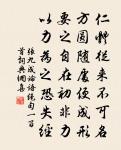 仁從來不可名
方圓隨處便成形
要之自在初非力
以力為之恐失經
張九成論語絕句一百
首詞典網喜